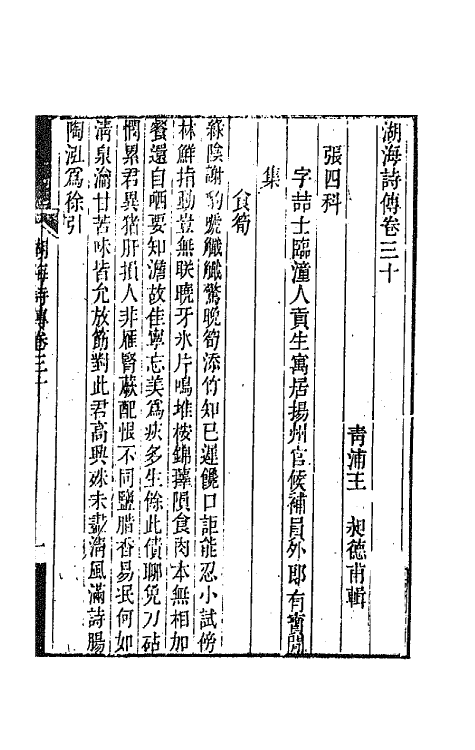 湖海詩傳卷三十
青浦王 昶德甫輯
張四科
字喆士臨潼人貢生寓居揚州官候補員外郎有寶閑
集
食筍
綠陰謝豹號觱觱驚晚筍添竹知已遲饞口詎能忍小試傍
林鮮指動豈無朕曉牙氷片鳴堆桉錦籜隕食肉本無相加
餐還自哂要知澹故佳寧忘美爲疢多生餘此債聊免刀砧
憫累君異猪肝損人非雁腎蕨配恨不同鹽腊香易泯何如
淸泉瀹甘苦味皆允放箸對此君高興殊未盡淸風滿詩腸
陶泓爲徐引
湖海詩傳卷三十
一